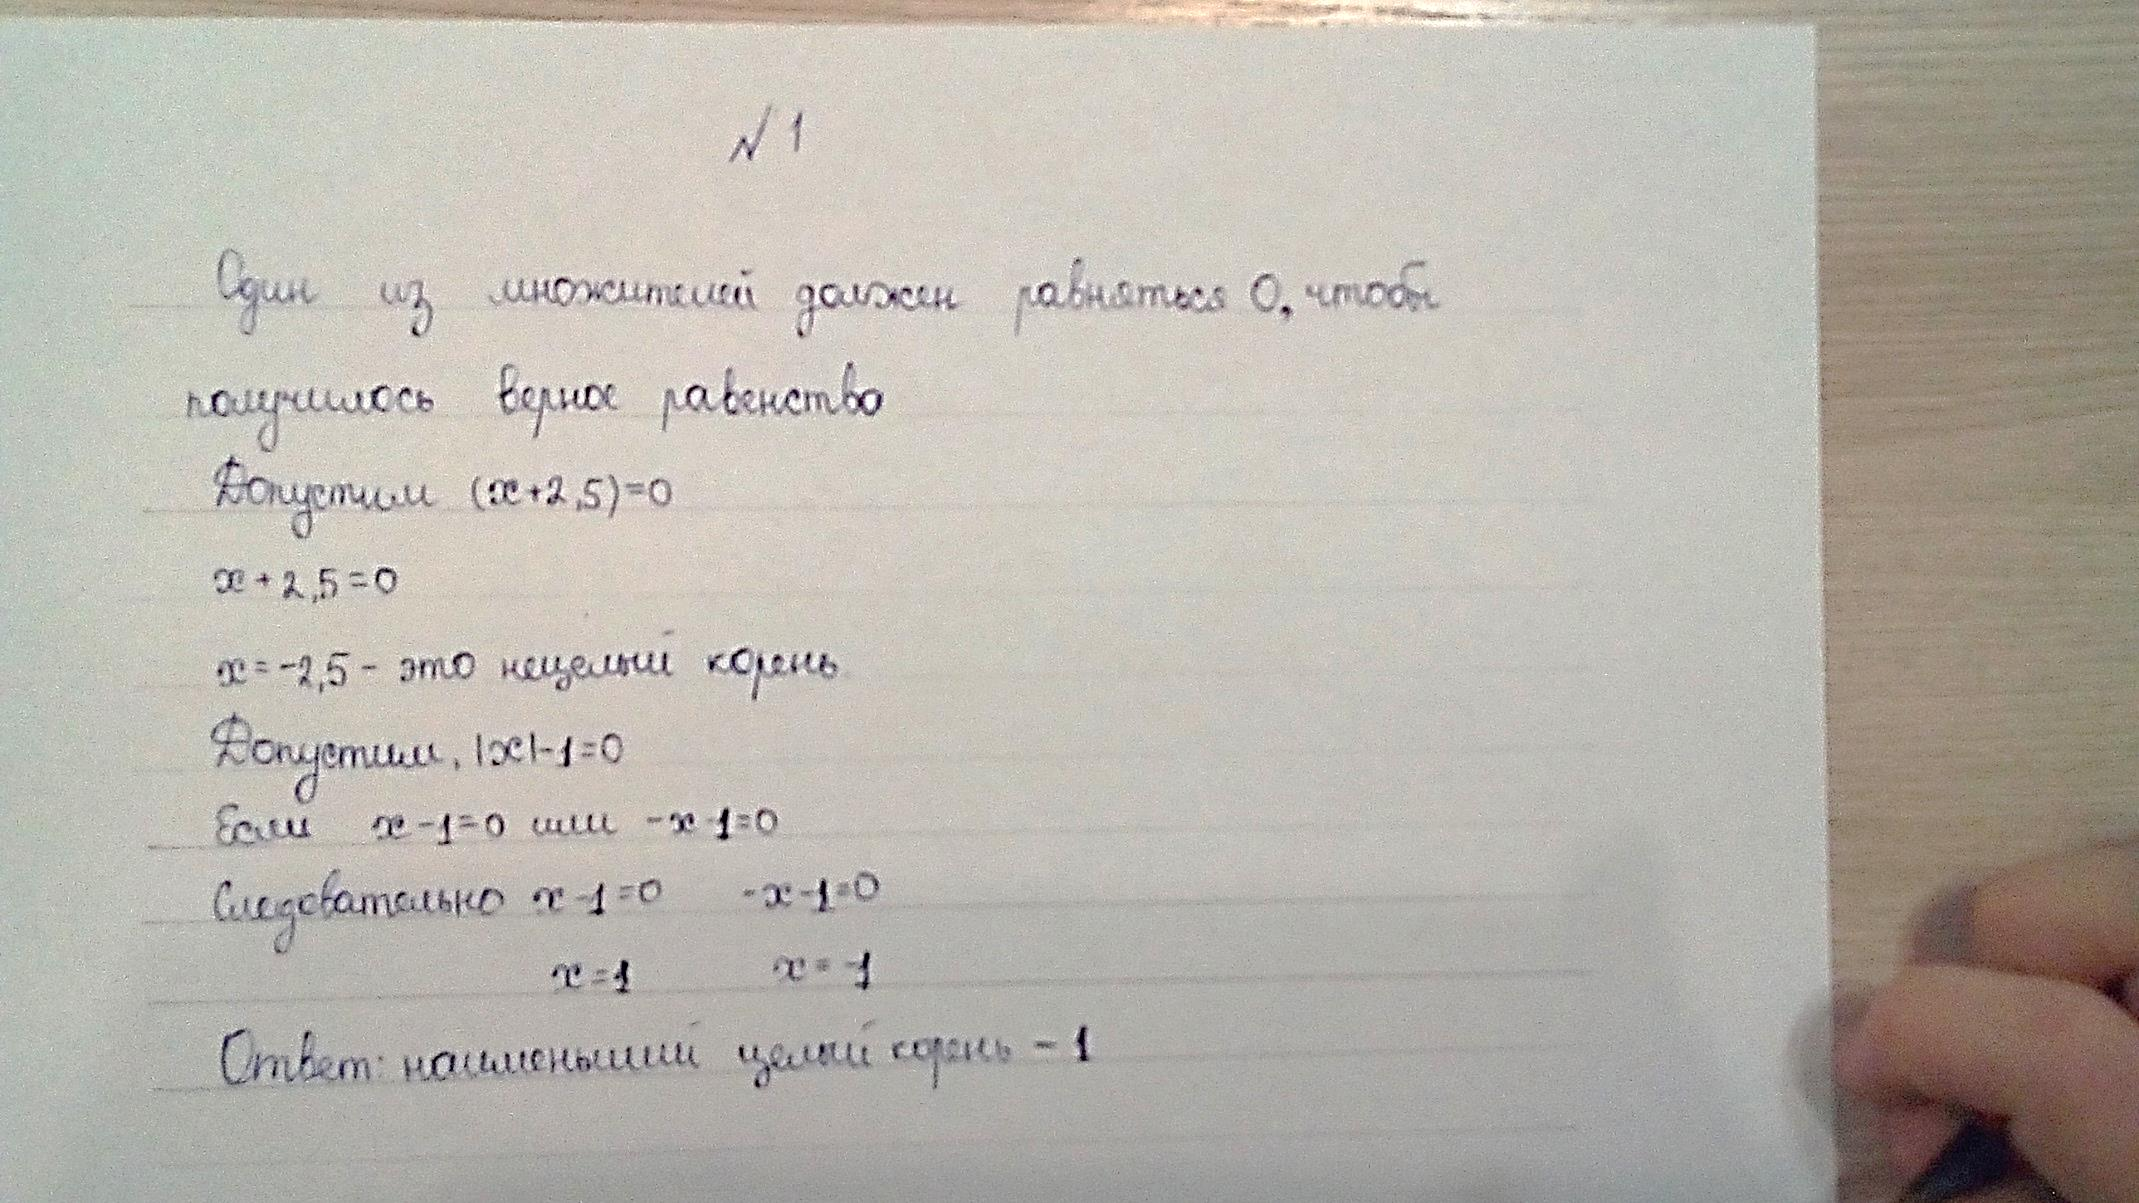 № 1
Один из множителей должен равняться 0, чтобы
получилось верное равенство
Допустим (x+2,5)=0
x+2,5=0
x=-2,5 - это нецелый корень
Допустим, |x|-1=0
Если x-1=0 или -x-1=0
Следовательно x-1=0 -x-1=0
x=1 x=-1
Ответ: наименьший целый корень -1